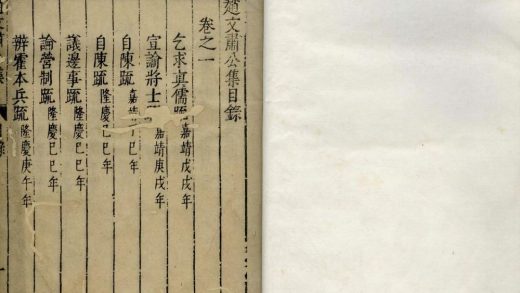 趙文肅公集目錄
卷之一
乞求真儒疏嘉靖戊戌年
宣諭將士 嘉靖庚戌年
自陳疏嘉靖 巳年
自陳疏隆慶己巳年
議邊事疏隆慶己巳年
論營制疏隆慶己巳年
辨霍本兵疏隆慶庚午年